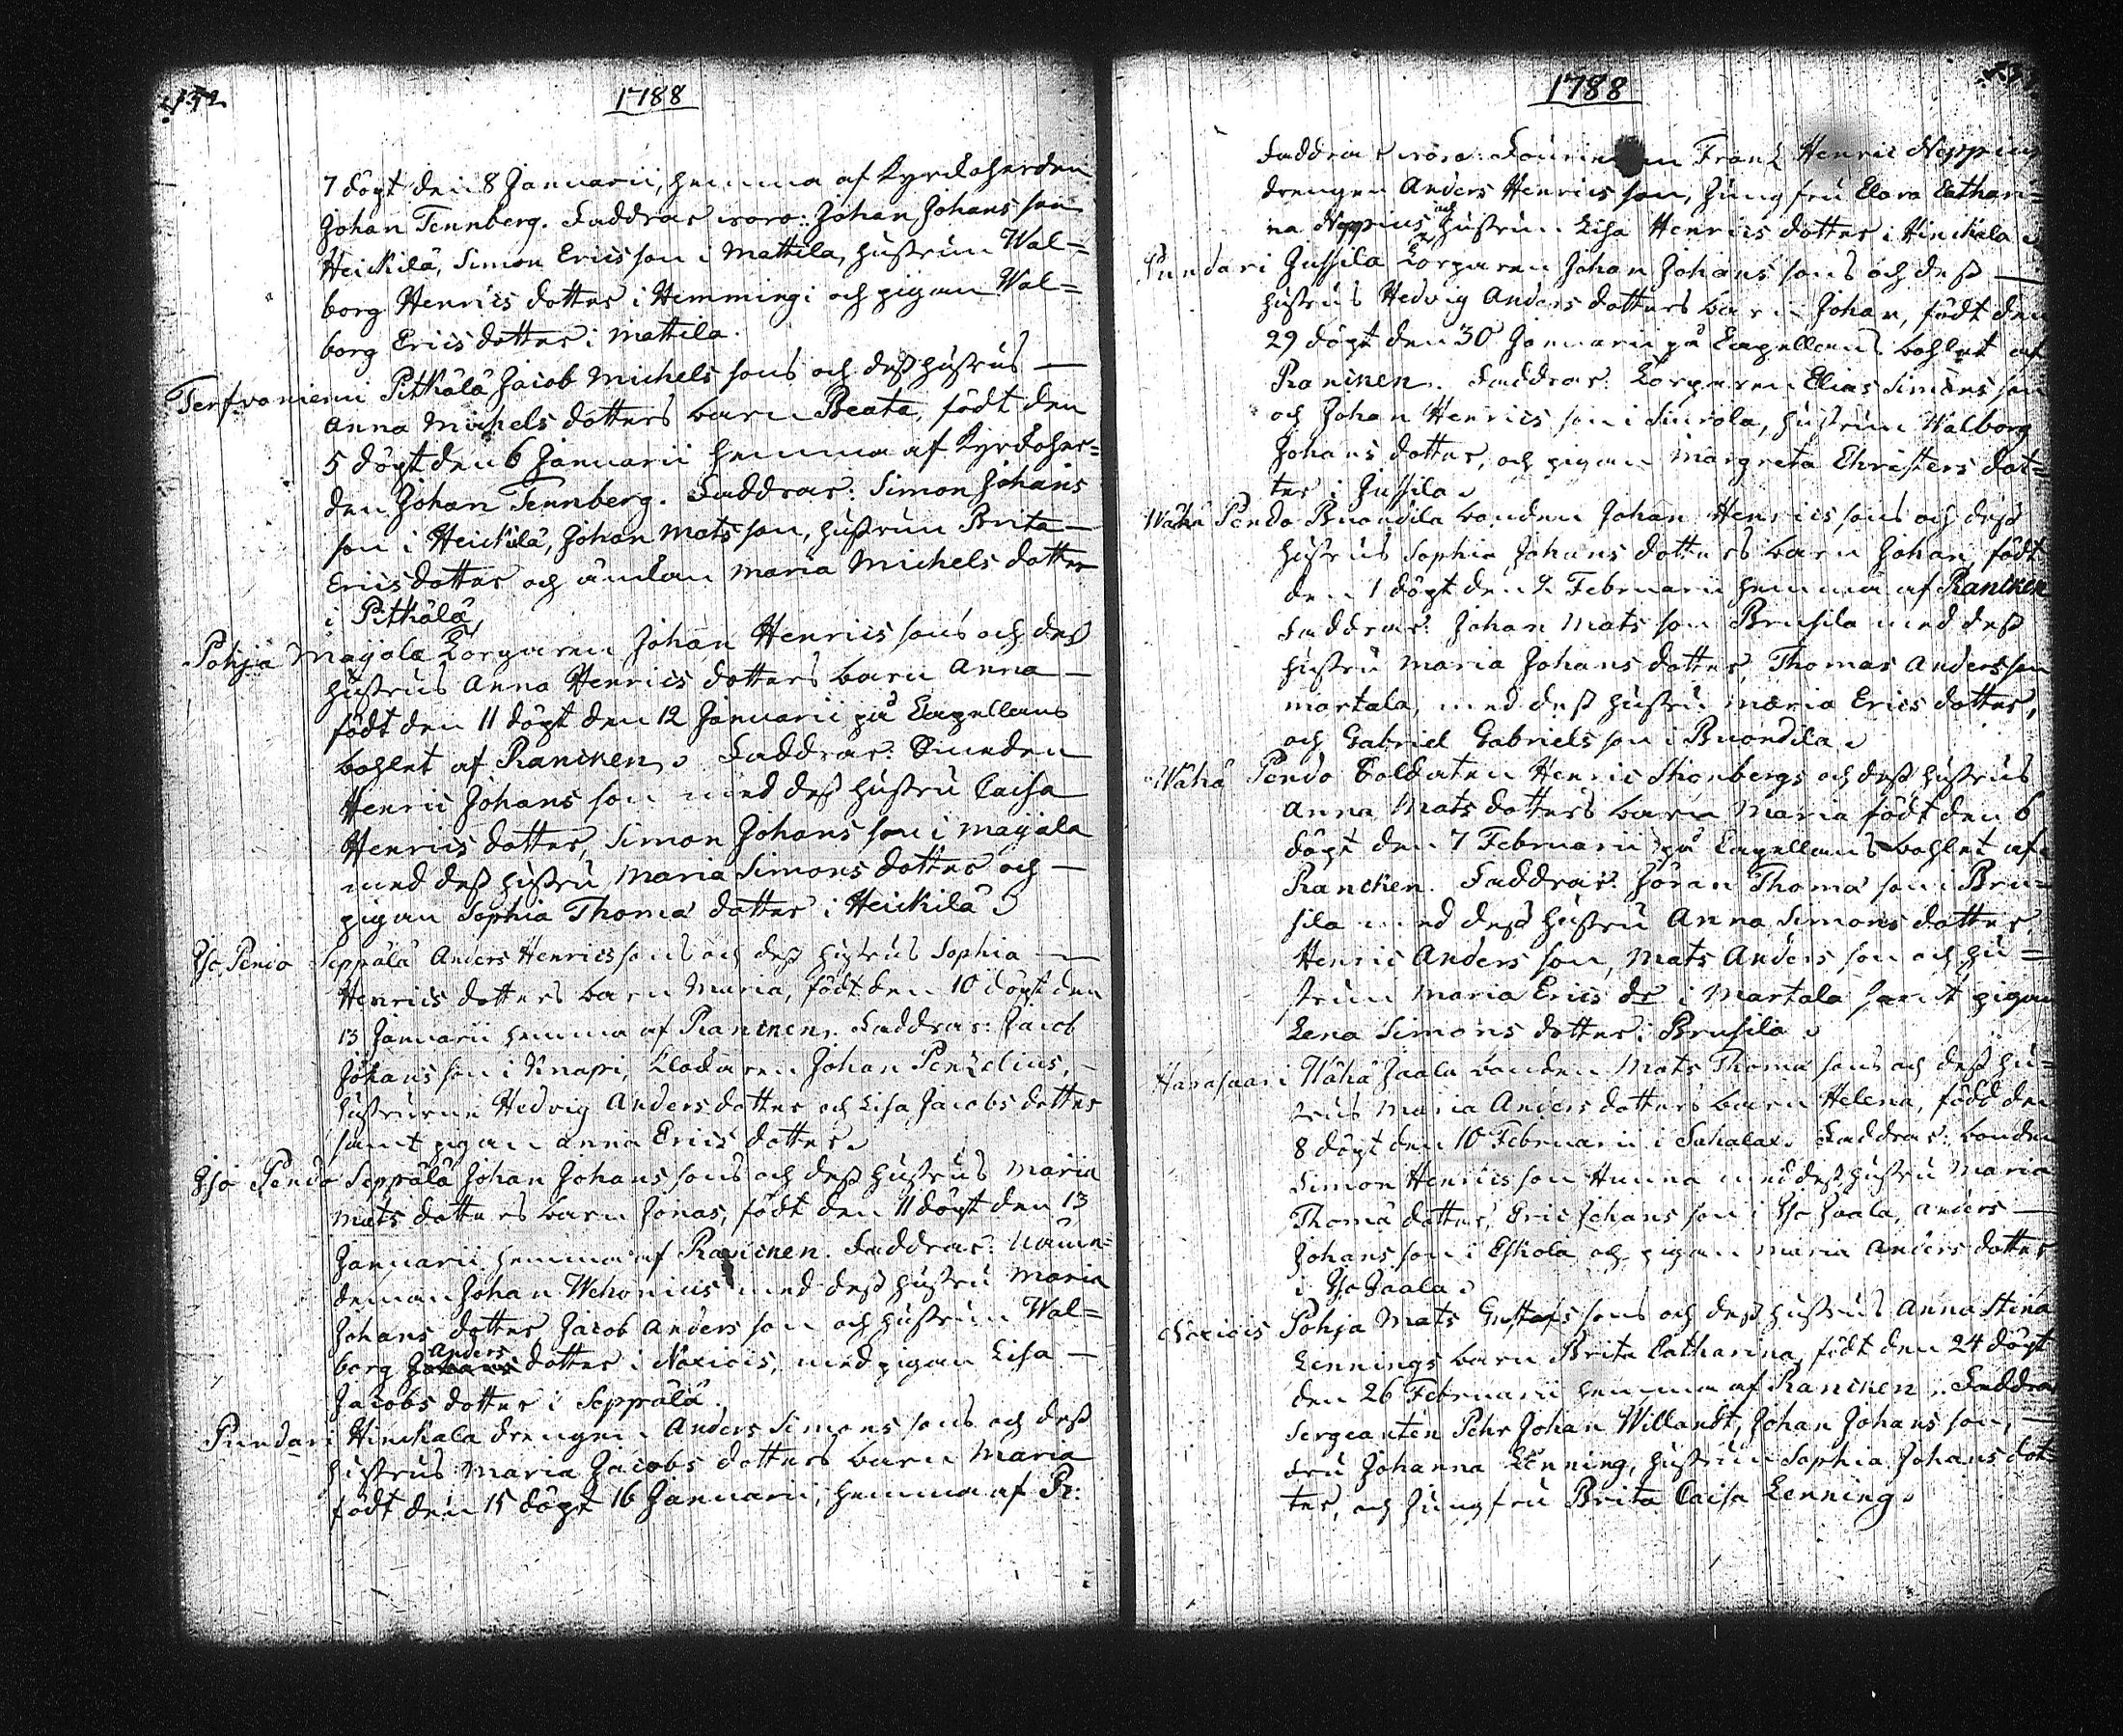 132
1788
7 döpt den 8 Januarii, hemma af Kyrckoherden
Johan Tennberg. Faddrar woro: Johan Johans son
Heickilä, Simon Erics son i Mattila, hustrun Wal=
borg Henrics dotter i Hemmingi och pigan Wal=
borg Erics dotter i Mattila.
Terfvaniemi Pitkälä Jacob Michels sons och dess hustrus —
Anna Michels dotters barn Beata, födt den
5 döpt den 6 Januarii hemma af Kyrckoher=
den Johan Tennberg. Faddrar: Simon Johans
son i Heickilä, Johan Mats son, hustrun Brita —
Erics dotter och änckan Maria Michels dotter
i Pitkälä,
Pohja Majala Torparen Johan Henrics sons och dess
hustrus Anna Henrics dotters barn Anna —
födt den 11 döpt den 12 Januarii på Capellans
bohlet af Rancken. Faddrar: Smeden
Henric Johans son med dess hustru Caisa
Henrics dotter, Simon Johans son i Majala
med dess hustru Maria Simons dotter och —
pigan Sophia Thomæ dotter i Heickilä.
Iso Pendo Seppälä Anders Henrics sons och dess hustrus Sophia —
Henrics dotters barn Maria, födt den 10 döpt den
13 Januarii hemma af Rancken. Faddrar: Jacob
Johans son i Knapi, Klockaren Johan Penzelius, —
hustrurne Hedvig Anders dotter och Lisa Jacobs dotter
samt pigan Anna Erics dotter.
Iso Pendo Seppälä Johan Johans sons och dess hustrus Maria
Mats dotters barn Jonas, födt den 11 döpt den 13
Januarii hemma af Rancken. Faddrar: Nämn=
deman Johan Wehonius med dess hustru Maria
Johans dotter, Jacob Anders son och hustrun Wal=
Anders
borg Johans dotter i Noxicis, med pigan Lisa —
Jacobs dotter i Seppälä.
Pundari Hinckala drengen Anders Simons sons och dess
hustrus Maria Jacobs dotters barn Maria
födt den 15 döpt 16 Januarii, hemma af R:
1788
Faddrar woro: Frantz Henric Neppius
drengen Anders Henrics son, Jungfru Clara Cathari=
och
na Neppius hustrun Lisa Henrics dotter i Hinckala.
Pundari Jussila Torparen Johan Johans sons och dess —
hustrus Hedvig Anders dotters barn Johan, födt den
29 döpt den 30 Januarii på Capellans bohlet af
Rancken. Faddrar: Torparen Elias Simons son
och Johan Henrics son i Sinrola, hustrun Walborg
Johans dotter, och pigan Margreta Christers dot=
ter i Jussila.
Wähä Pendo Buondila bonden Johan Henrics sons och dess
hustrus Sophia Johans dotters barn Johan, födt
den 1 döpt den 2 Februarii hemma af Rancken
Faddrar: Johan Mats son Brusila med dess
hustru Maria Johans dotter, Thomas Anders son
Martala, med dess hustru Maria Erics dotter,
och Gabriel Gabriels son i Buondila.
Wähä Pendo Soldaten Henric Skonbergs och dess hustrus
Anna Mats dotters barn Maria födt den 6
döpt den 7 Februarii på Capellans bohlet af
Rancken. Faddrar: Jöran Thomæ son i Bru=
sila med dess hustru Anna Simons dotter,
Henric Anders son, Mats Anders son och hu=
strun Maria Erics dr i Martala samt pigan
Lena Simons dotter i Brusila.
Hanasaari Wähä Jaala bonden Mats Thomæ sons och dess hu=
trus Maria Anders dotters barn Helena, född den
8 döpt den 10 Februarii i Sahalax. Faddrar: bonden
Simon Henrics son Hunna med dess hustru Maria
Thomæ dotter, Eric Johans son i Iso Jaala, Anders —
Johans son i Eskola och pigan Maria Anders dotter
i Iso Jaala.
Noxicis Pohja Mats Gustafs sons och dess hustrus Anna Stina
Lennings barn Brita Catharina, födt den 24 döpt
den 26 Februarii hemma af Rancken. Faddrar
Sergeanten Pehr Johan Willandt, Johan Johans son, —
Fru Johanna Lenning, hustrun Sophia Johans dot
ter, och Jungfru Brita Caisa Lenning.